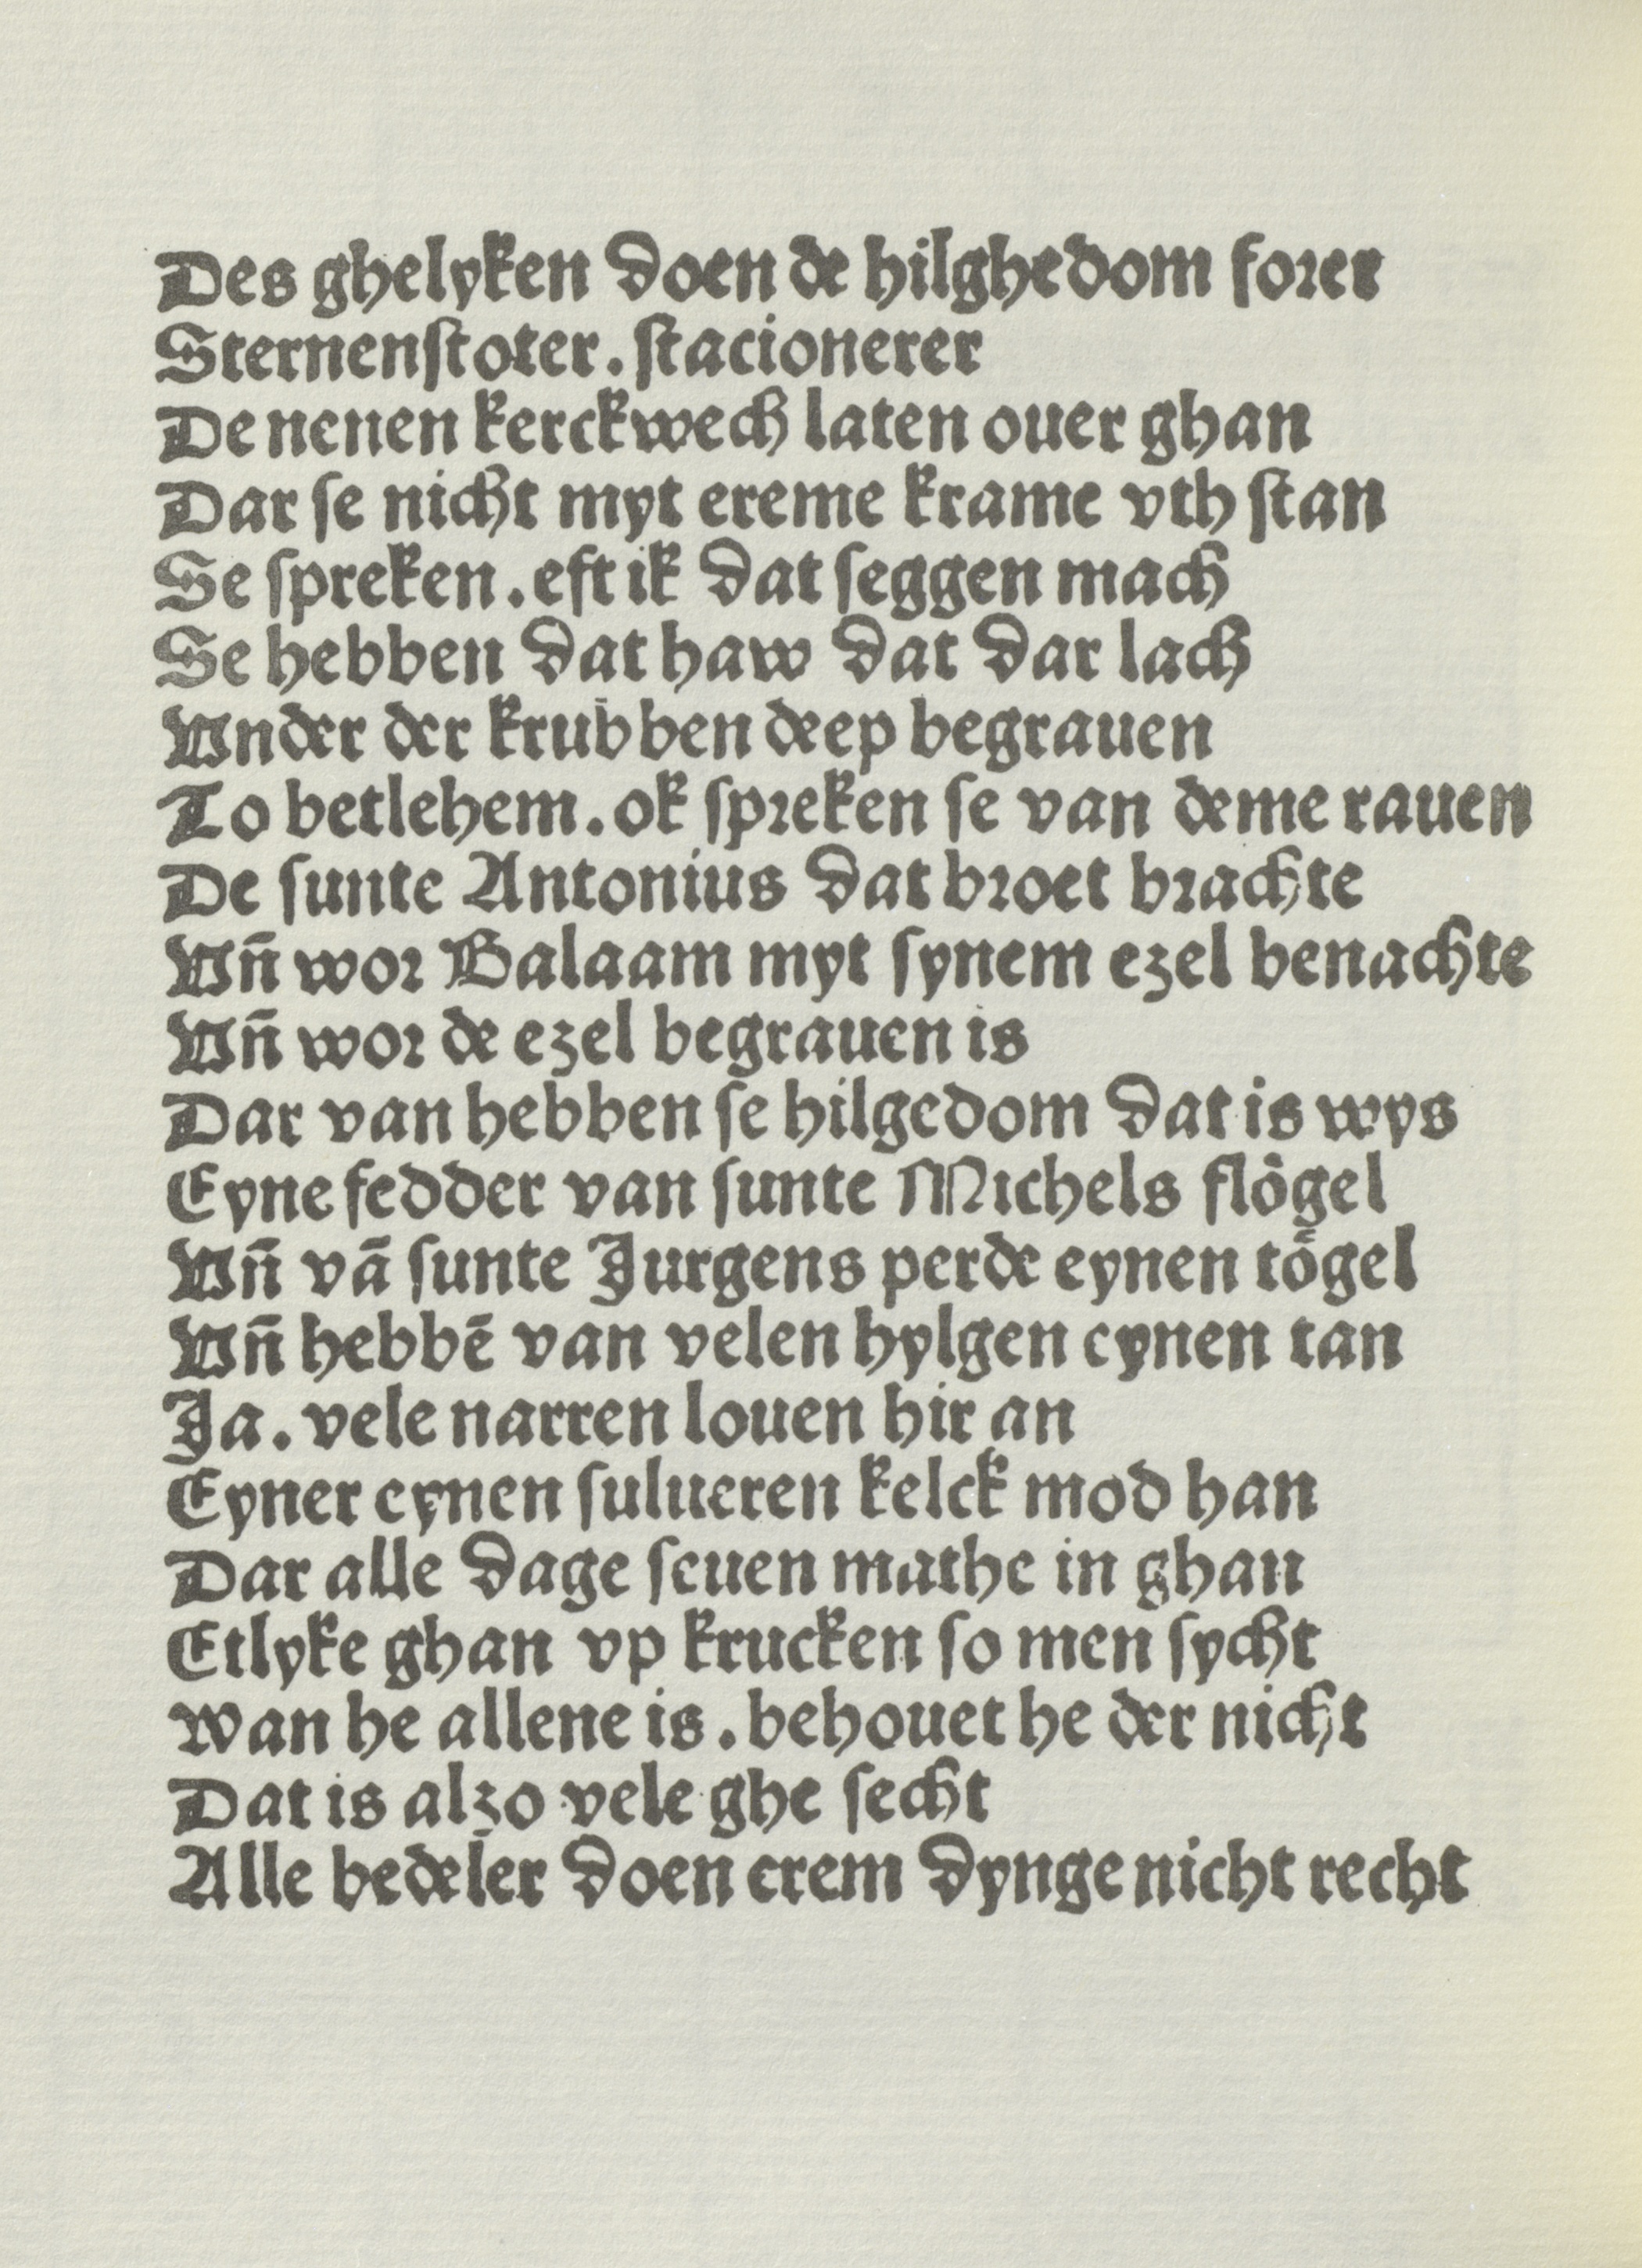 Des ghelyken doen de hilghedom forer
Sternenstoter. stacionerer
De nenen kerckwech laten ouer ghan
Dar se nicht myt ereme krame vth stan
Se spreken. eft ik dat seggen mach
Se hebben dat haw dat dar lach
Vnder der krubben deep begrauen
To betlehem. ok spreken se van deme rauen
De sunte Antonius dat broet brachte
Vn̄ wor Balaam myt synem ezel benachte
Vn̄ wor de ezel begrauen is
Dar van hebben se hilgedom dat is wys
Eyne fedder van sunte Michels flögel
Vn̄ vā sunte Jurgens perde eynen tögel
Vn̄ hebbē van velen hylgen eynen tan
Ja. vele narren louen hir an
Eyner eynen sulueren kelck mod han
Dar alle dage seuen mathe in ghan
Etlyke ghan vp krucken so men sycht
Wan he allene is. behouet he der nicht
Dat is alzo vele ghe secht
Alle bedeler doen erem dynge nicht recht